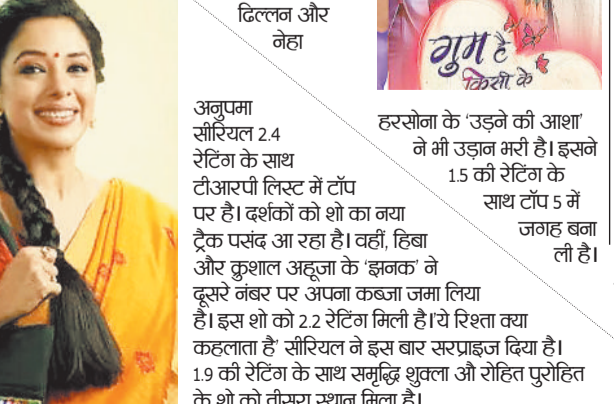 ढिल्लन और
नेहा
गुम है
किसी के
अनुपमा
सीरियल 2.4
रेटिंग के साथ
टीआरपी लिस्ट में टॉप
पर है। दर्शकों को शो का नया
ट्रैक पसंद आ रहा है। वहीं, हिबा
और क्रुशाल अहूजा के ‘झनक’ ने
दूसरे नंबर पर अपना कब्जा जमा लिया
है। इस शो को 2.2 रेटिंग मिली है।’ये रिश्ता क्या
कहलाता है’ सीरियल ने इस बार सरप्राइज दिया है।
1.9 की रेटिंग के साथ समृद्धि शुक्ला औ रोहित पुरोहित
के शो को तीसरा स्थान मिला है।
हरसोना के ‘उड़ने की आशा’
ने भी उड़ान भरी है। इसने
1.5 की रेटिंग के
साथ टॉप 5 में
जगह बना
ली है।